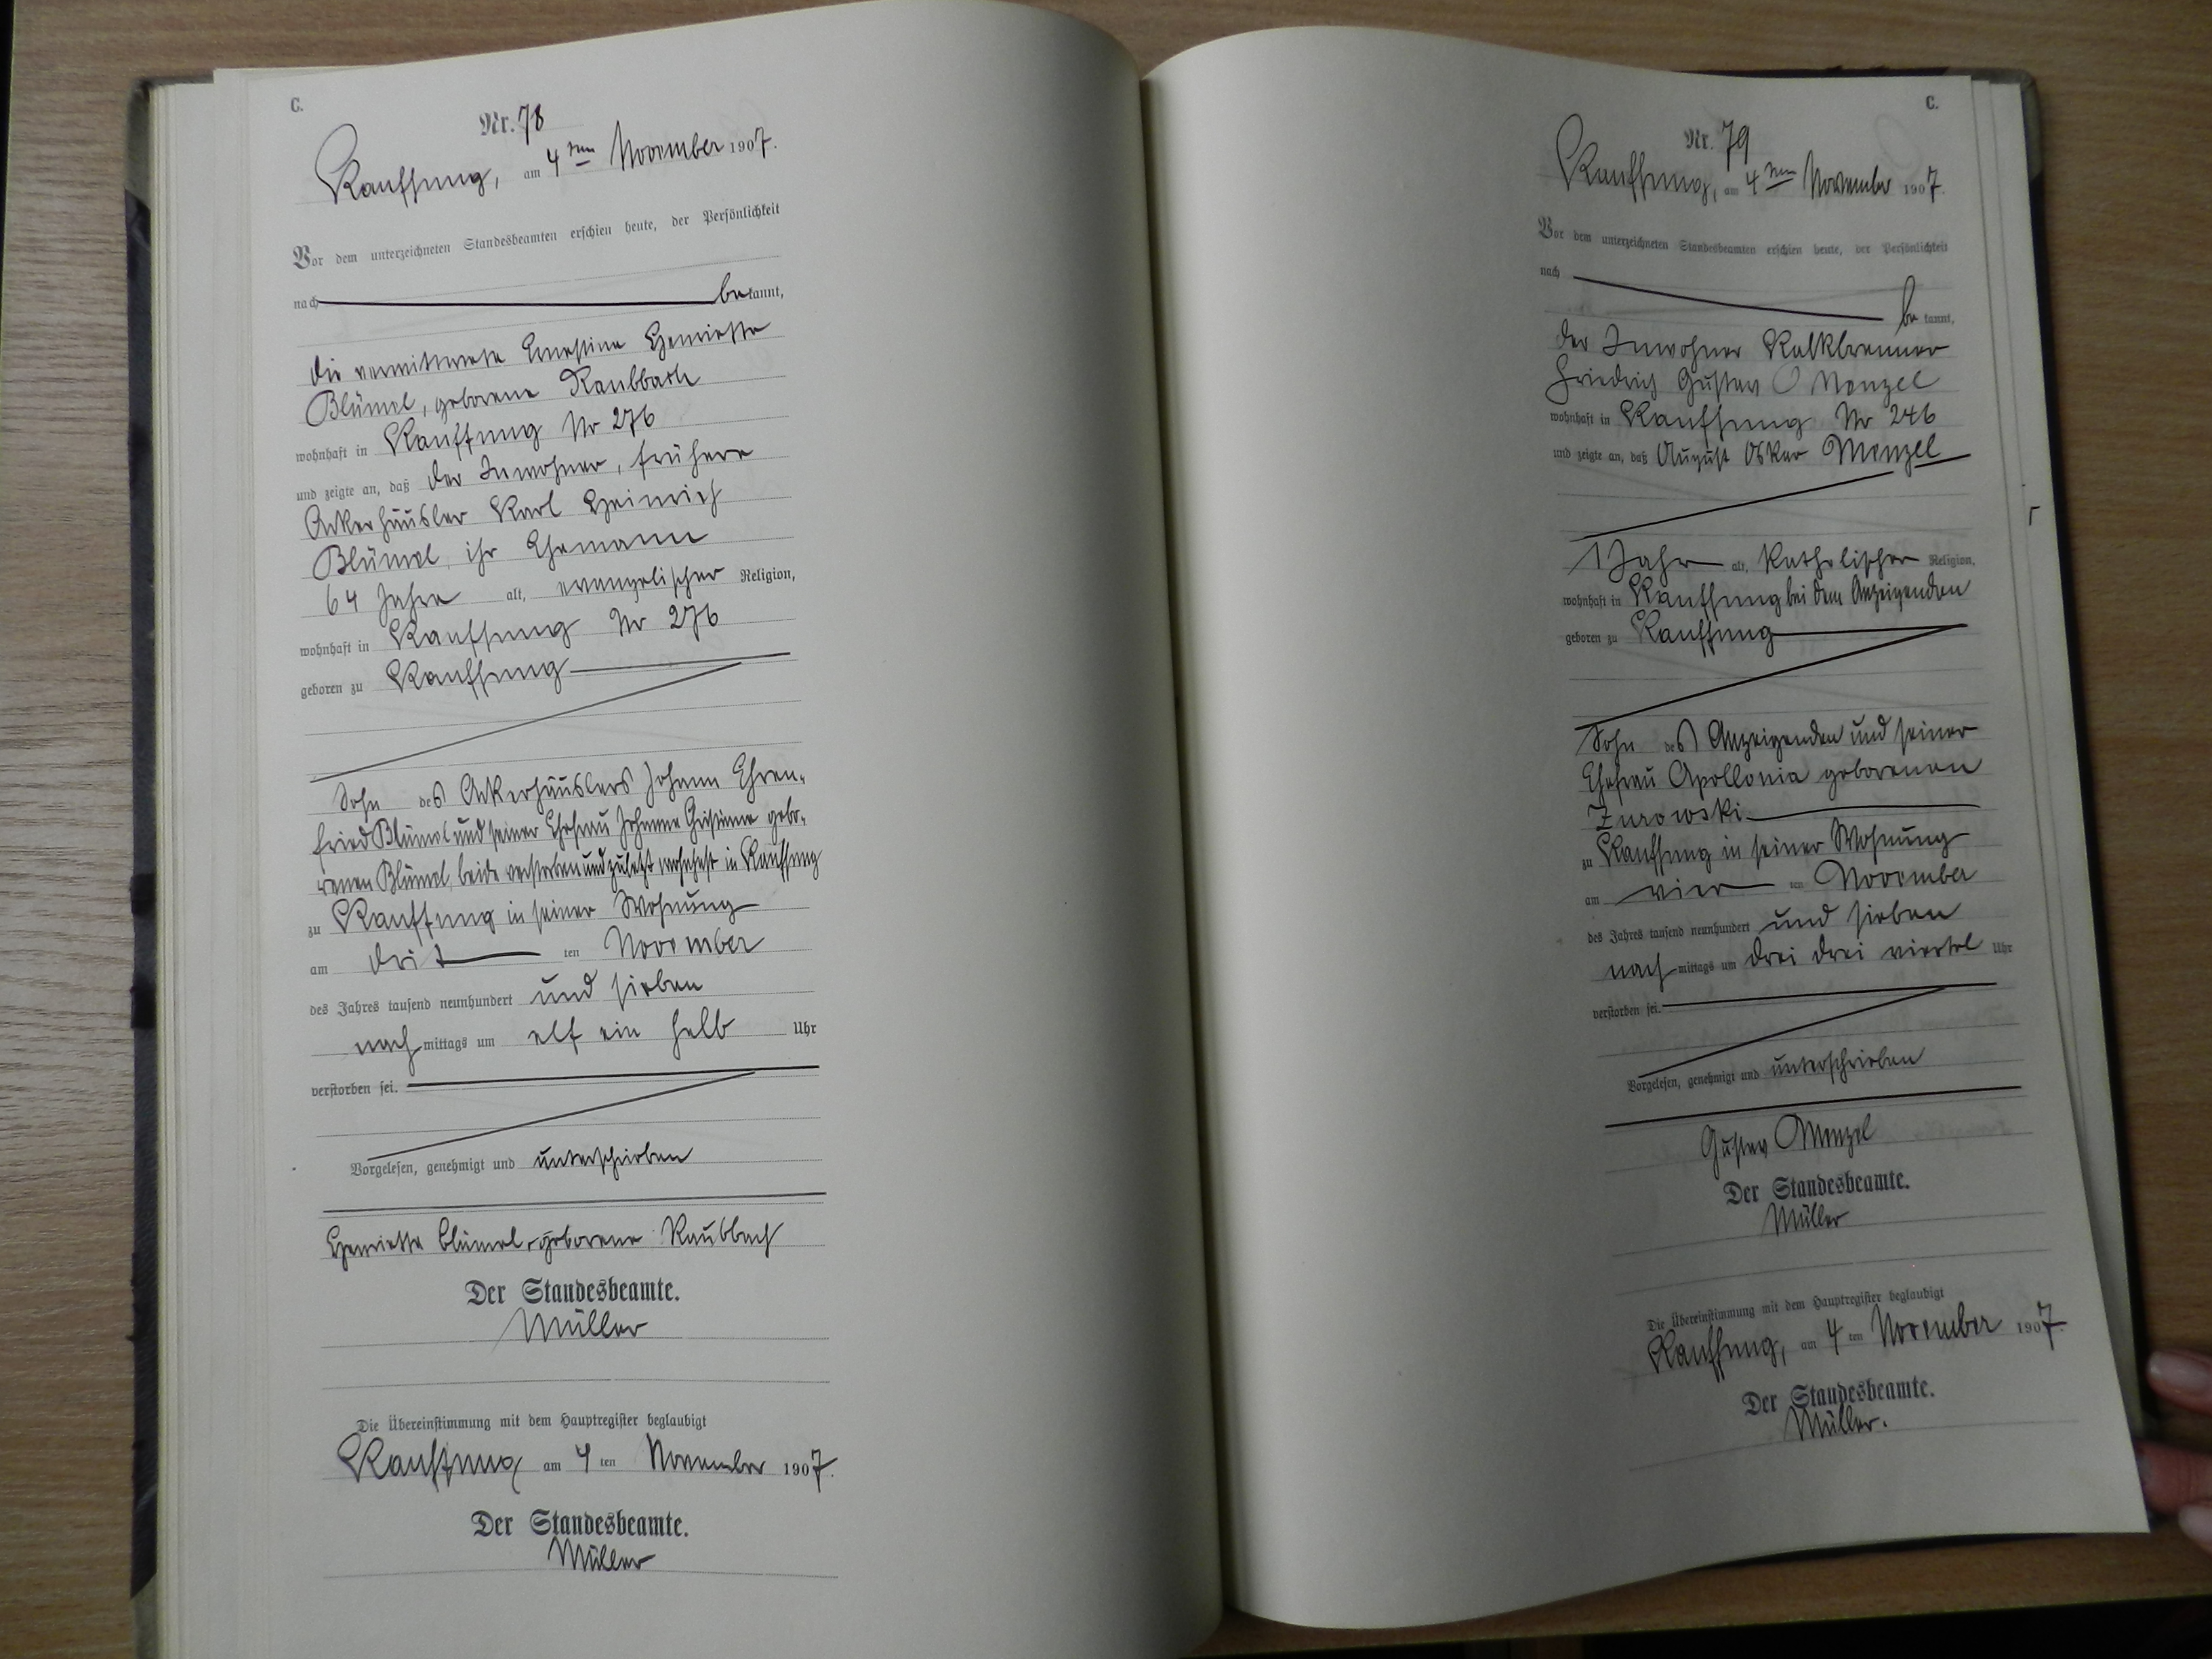 C.
Nr. 78
Kauffung, am 4ten November 1907.
Vor dem unterzeichneten Standesbeamten erschien heute, der Persönlichkeit
nach bekannt,
die verwittwete Ernestine Henriette
Blümel, geborene Raubbach
wohnhaft in Kauffung Nr 276
und zeigte an, daß der Inwohner, frühere
Ackerhäusler Karl Heinrich
Blümel, ihr Ehemann
64 Jahre alt, evangelischer Religion,
wohnhaft in Kauffung Nr 276
geboren zu Kauffung
Sohn des Ackerhäuslers Johann Ehren-
fried Blümel und seiner Ehefrau Johanne Christiane gebo-
renen Blümel, beide verstorben und zuletzt wohnhaft in Kauffung
zu Kauffung in seiner Wohnung
am dritten November
des Jahres tausend neunhundert und sieben
nachmittags um elf ein halb Uhr
verstorben sei.
Vorgelesen, genehmigt und unterschrieben
Henriette Blümel, geborene Raubbach
Der Standesbeamte.
Müller
Die Übereinstimmung mit dem Hauptregister beglaubigt
Kauffung am 4ten November 1907.
Der Standesbeamte.
Müller
C.
Nr. 79
Kauffung, am 4ten November 1907.
Vor dem unterzeichneten Standesbeamten erschien heute, der Persönlichkeit
nach bekannt,
der Inwohner Kalkbrenner
Friedrich Gustav Menzel
wohnhaft in Kauffung Nr 246
und zeigte an, daß August Oskar Menzel
1 Jahr alt, katholischer Religion,
wohnhaft in Kauffung bei dem Anzeigenden
geboren zu Kauffung
Sohn des Anzeigenden und seiner
Ehefrau Apollonia geborenen
Zurowski
zu Kauffung in seiner Wohnung
am vierten November
des Jahres tausend neunhundert und sieben
nachmittags um drei drei viertel Uhr
verstorben sei.
Vorgelesen, genehmigt und unterschrieben
Gustav Menzel
Der Standesbeamte.
Müller
Die Übereinstimmung mit dem Hauptregister beglaubigt
Kauffung, am 4ten November 1907.
Der Standesbeamte.
Müller.